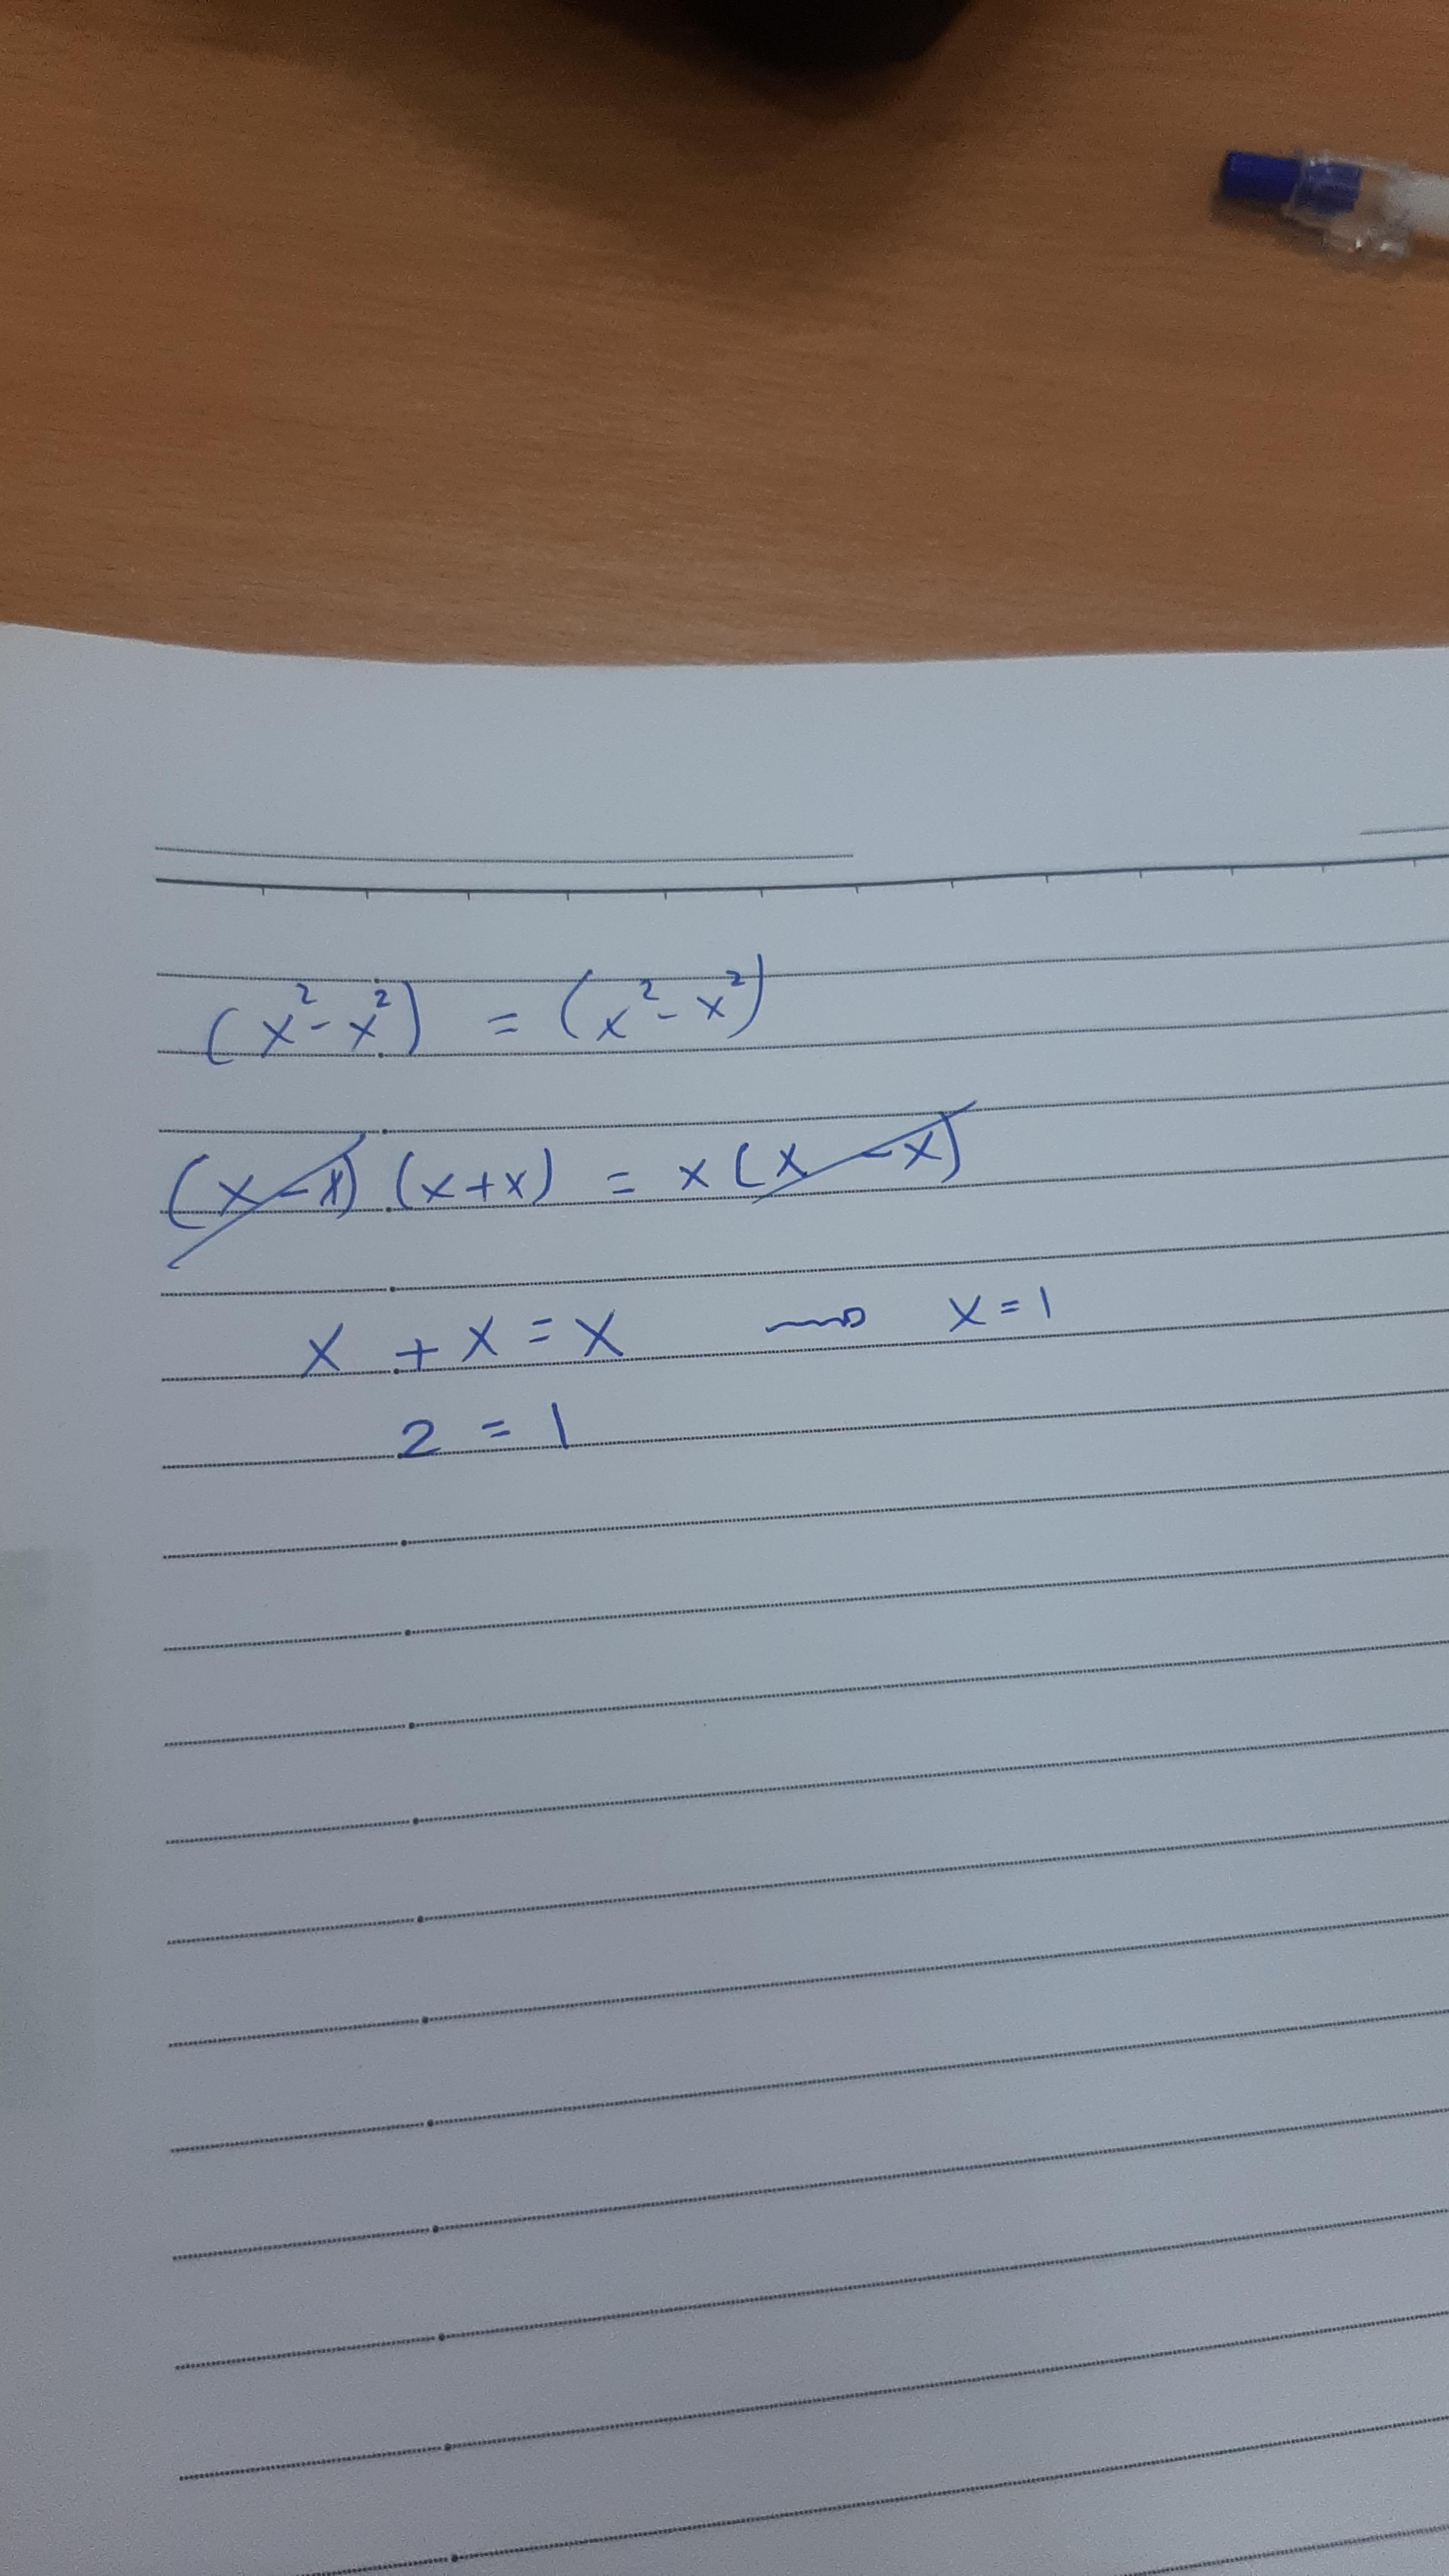 (x² - x²) = (x² - x²)
(x - x) (x + x) = x (x - x)
x + x = x ⟿ x = 1
2 = 1